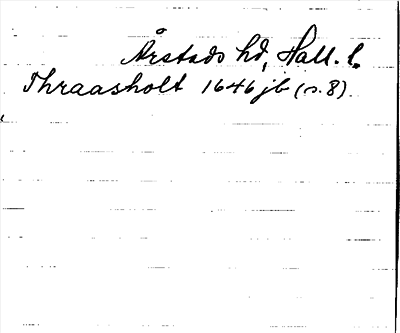 Årstads hd, Hall. l.
Thraasholt 1646 jb (s. 8).